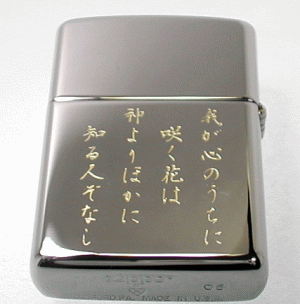 我が心のうちに
咲く花は
神よりほかに
知る人ぞなし
MADE IN U.S.A.